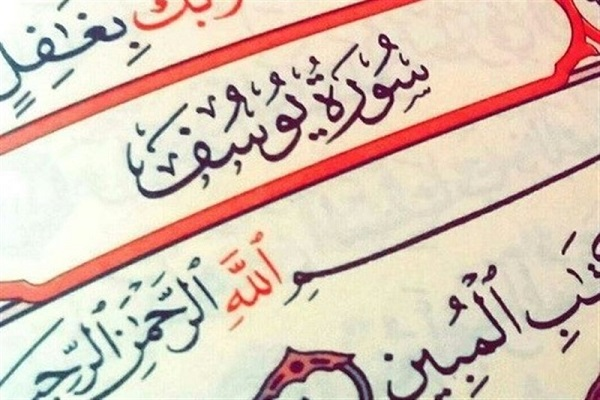 رَبُّكَ بِغَٰفِلٍ
سُورَةُ يُوسُفَ
بِسْمِ ٱللَّهِ ٱلرَّحْمَٰنِ ٱلرَّحِيمِ
ٱلْمُبِينِ